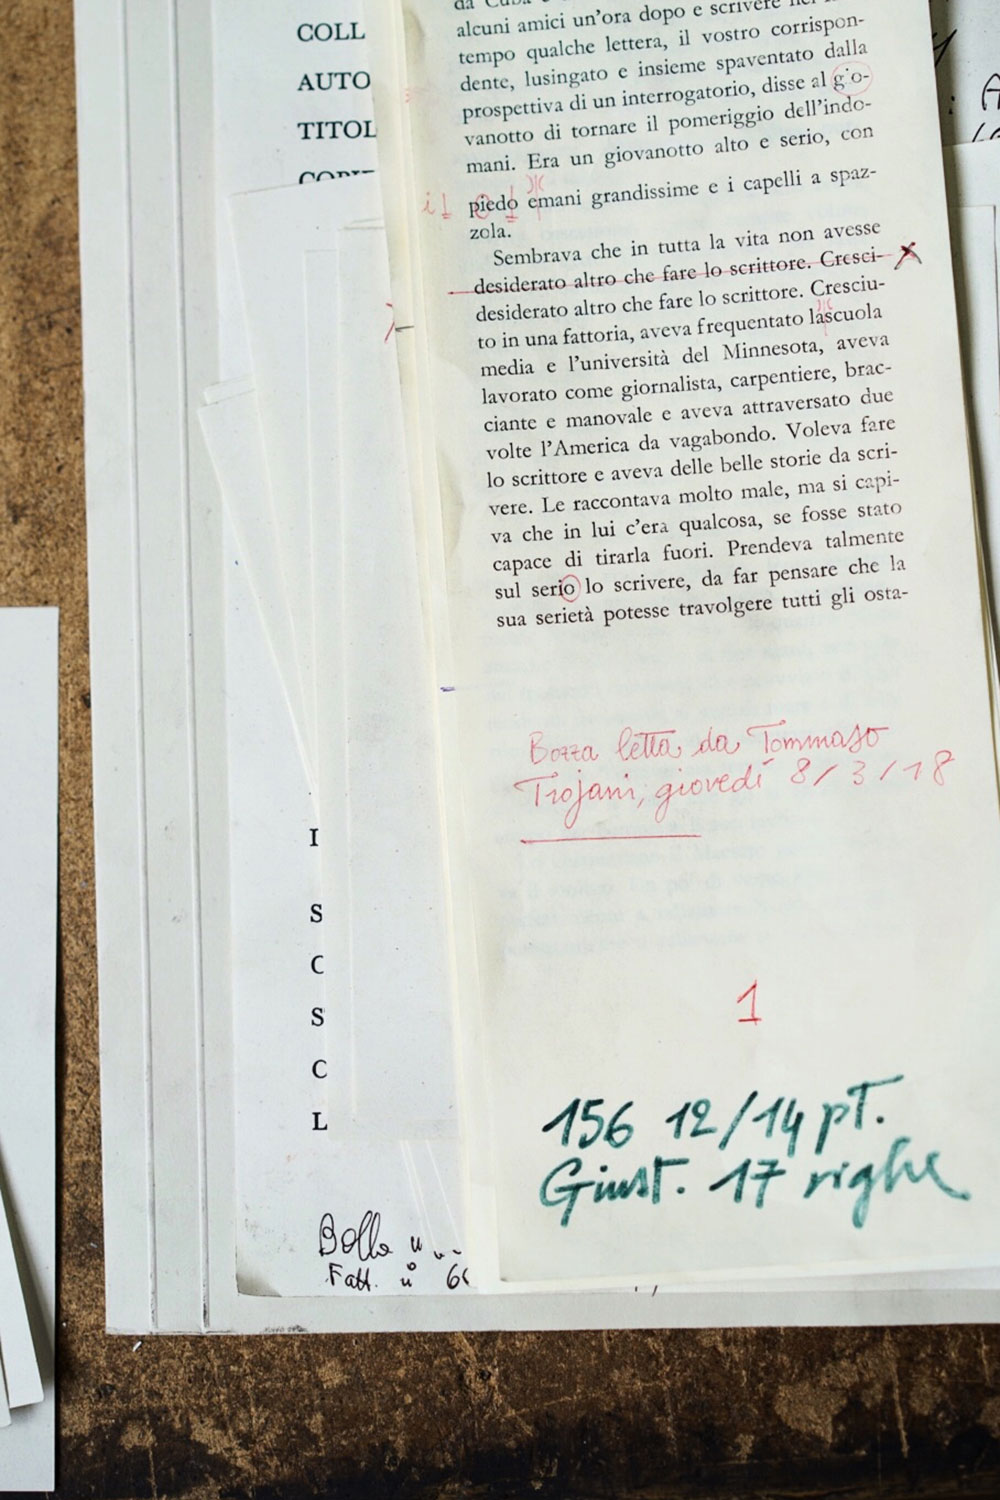 COLL
AUTO
TITOL
da Cuba e
alcuni amici un'ora dopo e scrivere nel
tempo qualche lettera, il vostro corrispon-
dente, lusingato e insieme spaventato dalla
prospettiva di un interrogatorio, disse al gio-
vanotto di tornare il pomeriggio dell'indo-
mani. Era un giovanotto alto e serio, con
piedo emani grandissime e i capelli a spaz-
zola.
Sembrava che in tutta la vita non avesse
desiderato altro che fare lo scrittore. Cresci-
desiderato altro che fare lo scrittore. Cresciu-
to in una fattoria, aveva frequentato lascuola
media e l'università del Minnesota, aveva
lavorato come giornalista, carpentiere, brac-
ciante e manovale e aveva attraversato due
volte l'America da vagabondo. Voleva fare
lo scrittore e aveva delle belle storie da scri-
vere. Le raccontava molto male, ma si capi-
va che in lui c'era qualcosa, se fosse stato
capace di tirarla fuori. Prendeva talmente
sul serio lo scrivere, da far pensare che la
sua serietà potesse travolgere tutti gli osta-
Bozza letta da Tommaso
Trojani, giovedí 8/3/18
1
156 12/14 pT.
Giust. 17 righe
I
S
C
S
C
L
Bolla
Fatt. n°